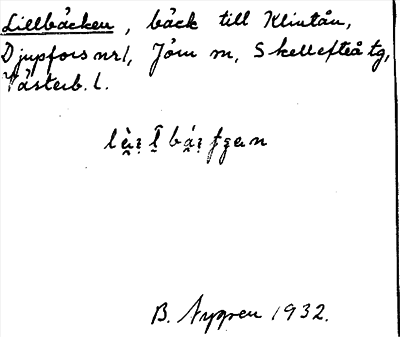 Lillbäcken, bäck till Klintån,
Djupfors nr 1, Jörn sn, Skellefteå tg,
Västerb. l.
B. Nygren 1932.